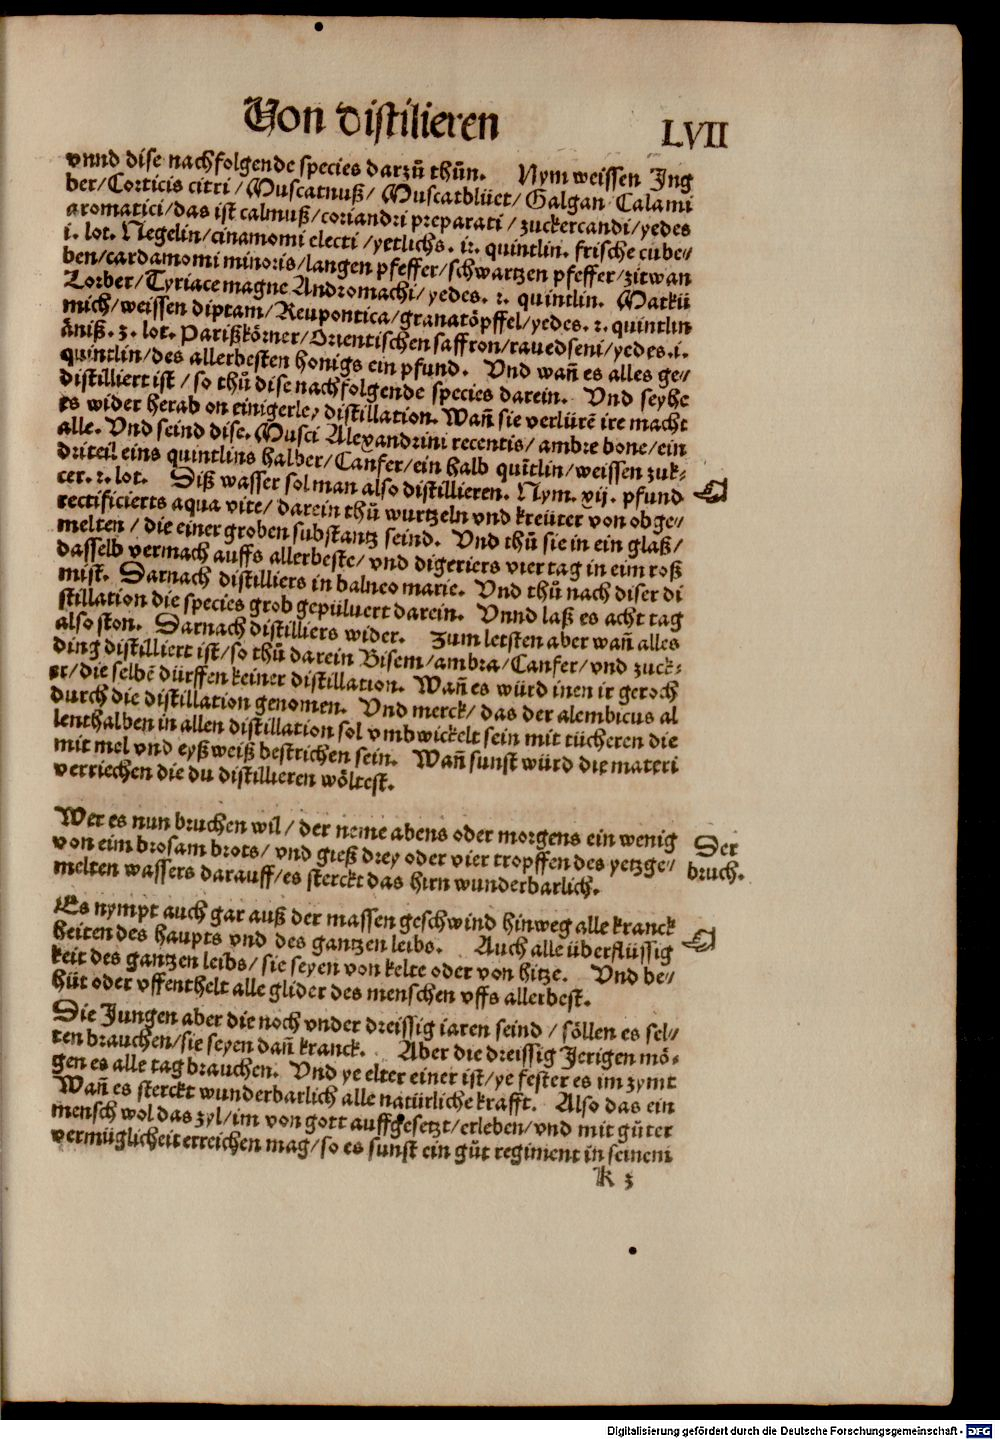 Von distilieren
LVII
vnnd dise nachfolgende species darzů thůn. Nym weissen Jng
ber/Corticis citri/Muscatnuß/Muscatblüet/Galgan Calami
aromatici/das ist calmuß/coriandri preparati/zuckercandi/yedes
i. lot. Negelin/cinamomi electi/yetlichs. iꝛ. quintlin. frische cube//
ben/cardamomi minoris/langen pfeffer/schwartzen pfeffer/zitwan
Lorber/Tyriace magne Andromachi/yedes. ꝛ. quintlin. Matkü
mich/weissen diptam/Reupontica/granatöpffel/yedes. ꝛ. quintlin
äniß. ʒ. lot. Parißkörner/Orientischen saffron/rauedseni/yedes. i.
quintlin/des allerbesten honigs ein pfund. Vnd wañ es alles ge//
distilliert ist/so thů dise nachfolgende species darein. Vnd seyhe
es wider herab on einigerley distillation. Wañ sie verlürē ire macht
alle. Vnd seind dise. Musci Alexandrini recentis/ambre bone/ein
driteil eins quintlins halber/Canfer/ein halb quītlin/weissen zuk-
cer. ꝛ. lot. Diß wasser sol man also distillieren. Nym. xij. pfund
rectificierts aqua vite/darein thů wurtzeln vnd kreüter von obge//
melten/die einer groben substantz seind. Vnd thů sie in ein glaß/
dasselb vermach auffs allerbeste/vnd digeriers vier tag in eim roß
mist. Darnach distilliers in balneo marie. Vnd thů nach diser di
stillation die species grob gepüluert darein. Vnnd laß es acht tag
also ston. Darnach distilliers wider. Zum letsten aber wañ alles
ding distilliert ist/so thů darein Bisem/ambra/Canfer/vnd zuck-
er/die selbē dürffen keiner distillation. Wañ es würd inen ir geroch
durch die distillation genomen. Vnd merck/das der alembicus al
lenthalben in allen distillation sol vmbwickelt sein mit tücheren die
mit mel vnd eyßweiß bestrichen sein. Wañ sunst würd die materi
verriechen die du distillieren wöltest.
Wer es nun bruchen wil/der neme abens oder morgens ein wenig
von eim brosam brots/vnd gieß drey oder vier tropffen des yetzge//
melten wassers darauff/es sterckt das hirn wunderbarlich.
Der
bruch.
Es nympt auch gar auß der massen geschwind hinweg alle kranck
heiten des haupts vnd des gantzen leibs. Auch alle überflüssig
keit des gantzen leibs/sie seyen von kelte oder von hitze. Vnd be//
hüt oder vffenthelt alle glider des menschen vffs allerbest.
Die Jungen aber die noch vnder dreissig iaren seind/söllen es sel//
ten brauchen/sie seyen dañ kranck. Aber die dreissig Jerigen mö-
gen es alle tag brauchen. Vnd ye elter einer ist/ye fester es im zymt
Wañ es sterckt wunderbarlich alle natürliche krafft. Also das ein
mensch wol das zyl/im von gott auffgesetzt/erleben/vnd mit gůter
vermüglicheit erreichen mag/so es sunst ein gůt regiment in seinem
K ʒ
Digitalisierung gefördert durch die Deutsche Forschungsgemeinschaft - DFG